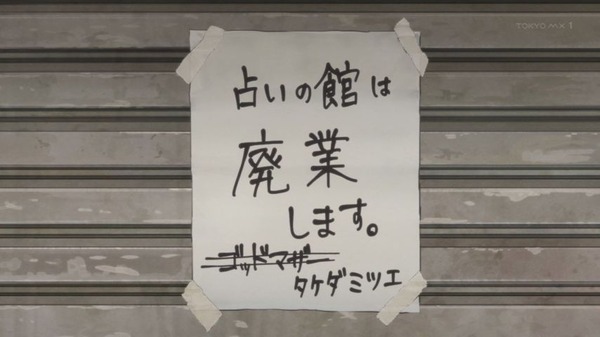 TOKYO MX 1
占いの館は
廃業
します。
ゴッドマザー
タケダミツエ